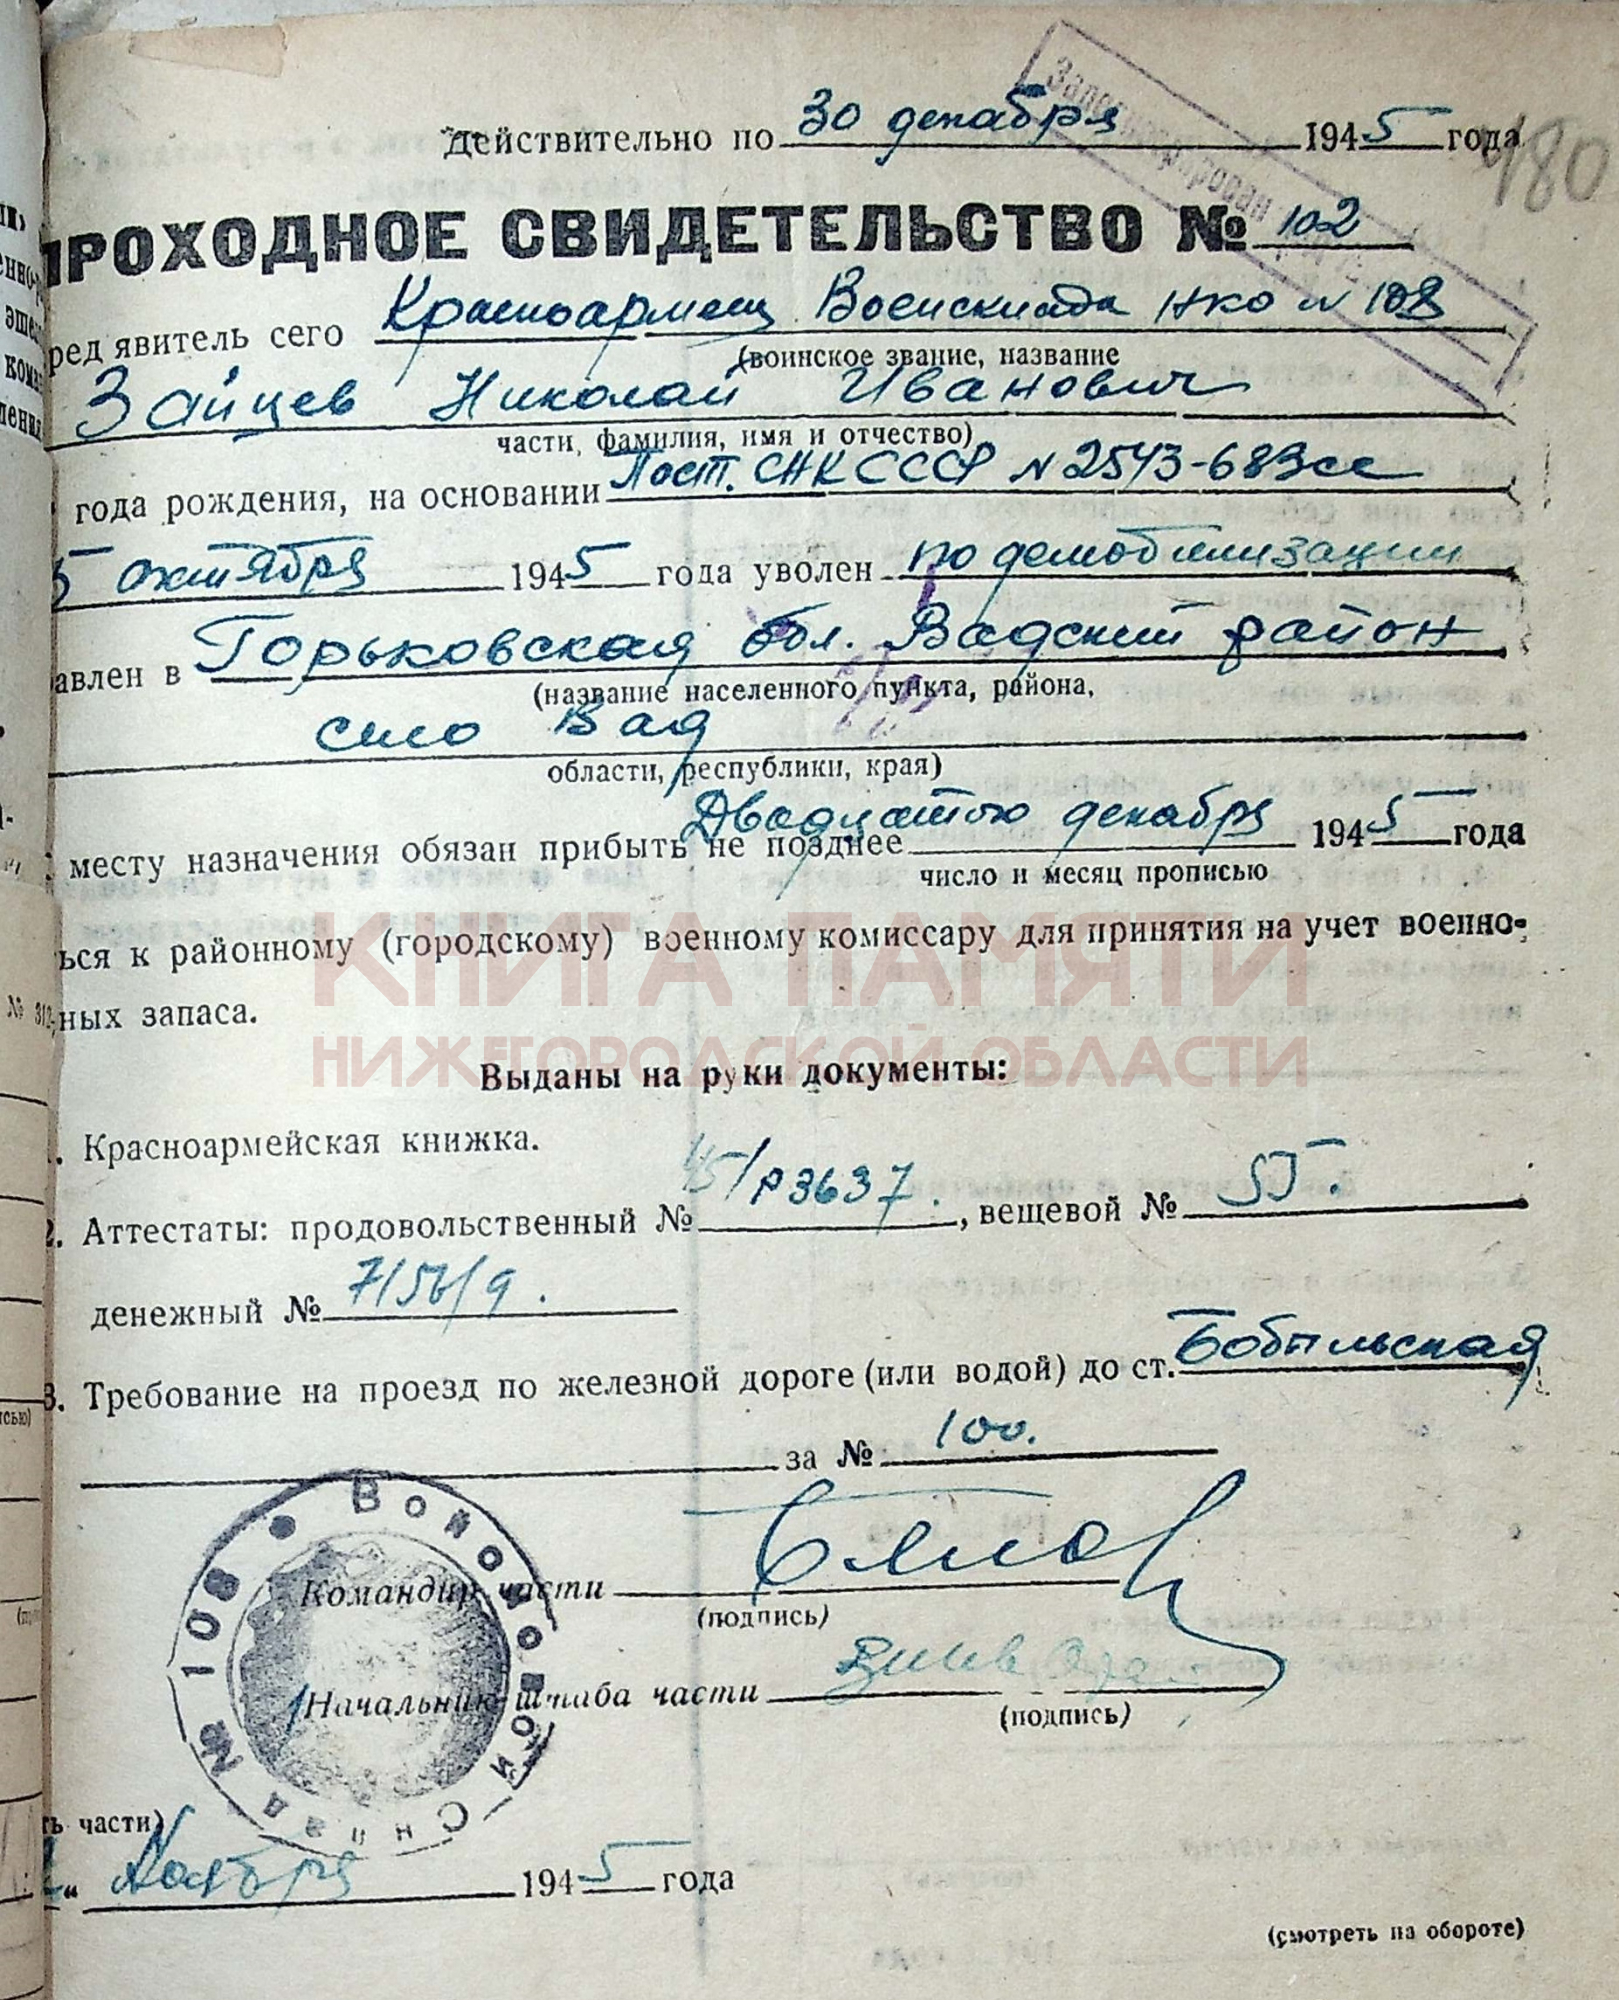 Действительно по 30 декабря 1945 года
480
ПРОХОДНОЕ СВИДЕТЕЛЬСТВО № 102
ред'явитель сего Красноармеец Военсклада НКО N 108
(воинское звание, название
Зайцев Николай Иванович
части, фамилия, имя и отчество)
года рождения, на основании Пост. СНК СССР N 2543-683сс
5 октября 1945 года уволен по демобилизации
авлен в Горьковская обл. Вадский район
(название населенного пункта, района,
село Вад
области, республики, края)
месту назначения обязан прибыть не позднее Двадцатого декабря 1945 года
число и месяц прописью
ься к районному (городскому) военному комиссару для принятия на учет военно-
КНИГА ПАМЯТИ
ных запаса.
НИЖЕГОРОДСКОЙ ОБЛАСТИ
Выданы на руки документы:
. Красноармейская книжка.
2. Аттестаты: продовольственный № 45/Р3637. , вещевой №
денежный №
3. Требование на проезд по железной дороге (или водой) до ст. Бобыльская
за № 100.
Командир части
(подпись)
Начальник штаба части
(подпись)
Войсковой Склад № 108
ть части)
" Ноября 1945 года
(смотреть на обороте)